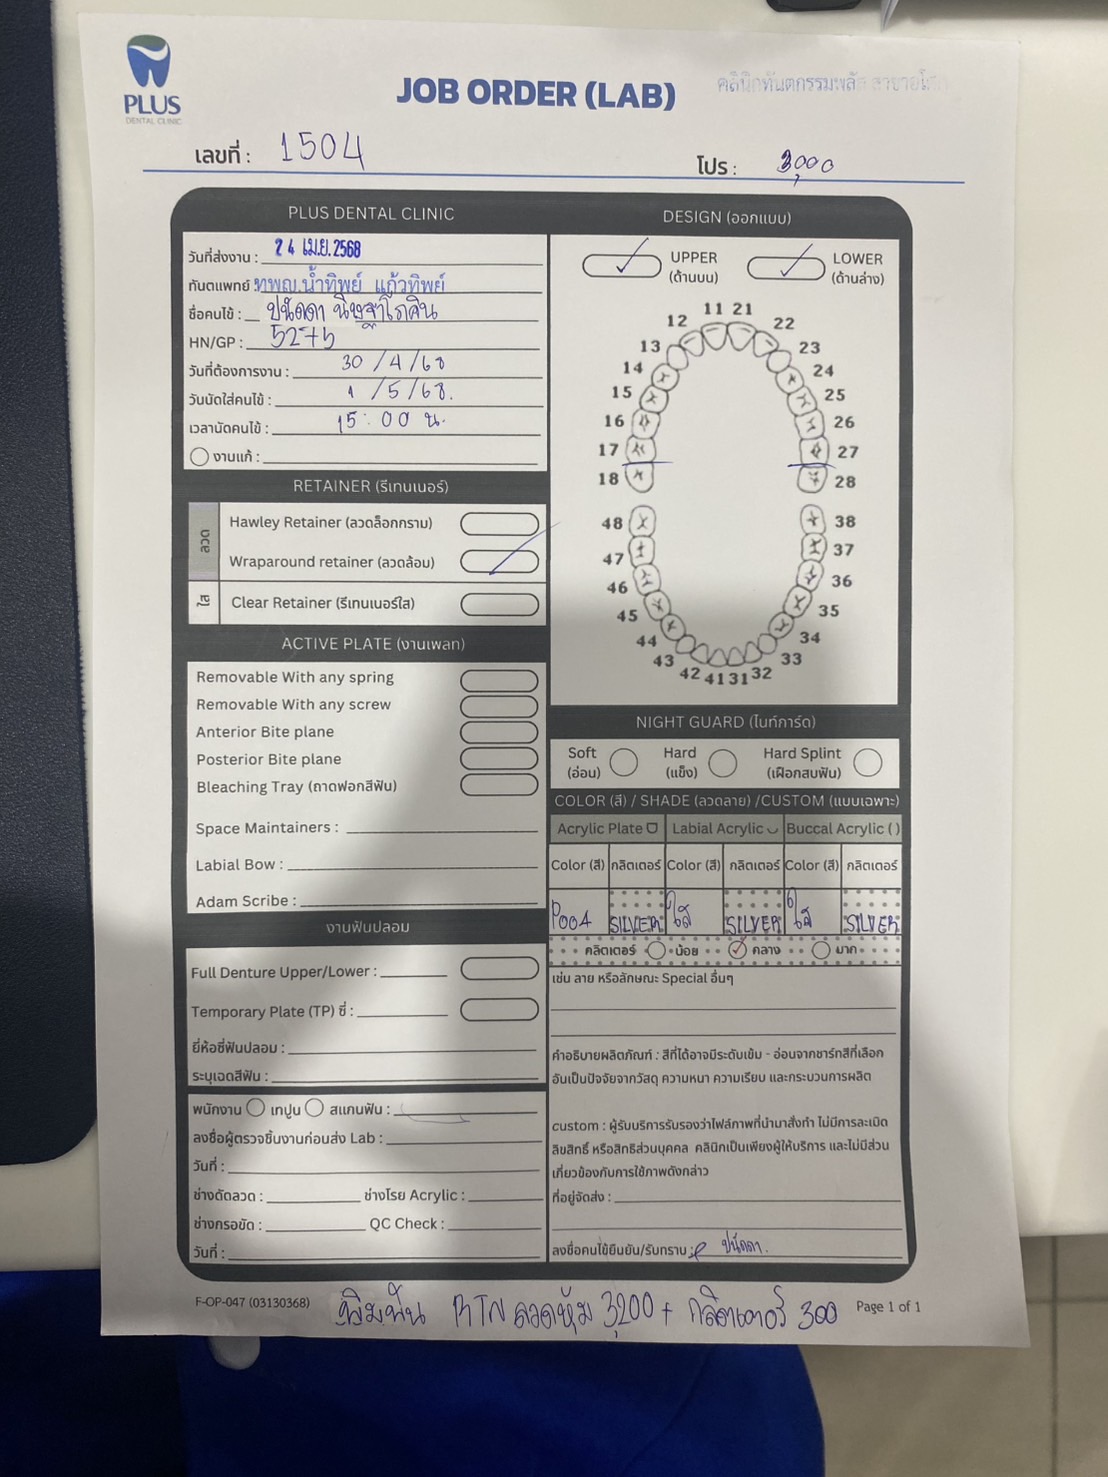 PLUS
DENTAL CLINIC
JOB ORDER (LAB)
คลินิกทันตกรรมพลัส สาขา
เลขที่ : 1504
โปร : 3,000
PLUS DENTAL CLINIC
วันที่ส่งงาน : 24 เม.ย. 2568
ทันตแพทย์ : ทพญ.น้ำทิพย์ แก้วทิพย์
ชื่อคนไข้ : ปนัดดา
HN/GP : 5275
วันที่ต้องการงาน : 30/4/68
วันนัดใส่คนไข้ : 1/5/68.
เวลานัดคนไข้ : 15:00 น.
งานแก้ :
RETAINER (รีเทนเนอร์)
ลวด
Hawley Retainer (ลวดล็อกกราม)
Wraparound retainer (ลวดล้อม)
ใส
Clear Retainer (รีเทนเนอร์ใส)
ACTIVE PLATE (งานเพลท)
Removable With any spring
Removable With any screw
Anterior Bite plane
Posterior Bite plane
Bleaching Tray (ถาดฟอกสีฟัน)
Space Maintainers :
Labial Bow :
Adam Scribe :
งานฟันปลอม
Full Denture Upper/Lower :
Temporary Plate (TP) ซี่ :
ยี่ห้อซี่ฟันปลอม :
ระบุเฉดสีฟัน :
พนักงาน เทปูน สแกนฟัน :
ลงชื่อผู้ตรวจชิ้นงานก่อนส่ง Lab :
วันที่ :
ช่างดัดลวด : ช่างโรย Acrylic :
ช่างกรอขัด : QC Check :
วันที่ :
DESIGN (ออกแบบ)
UPPER LOWER
(ด้านบน) (ด้านล่าง)
11 21
12 22
13 23
14 24
15 25
16 26
17 27
18 28
48 38
47 37
46 36
45 35
44 34
43 33
42 41 31 32
NIGHT GUARD (ไนท์การ์ด)
Soft Hard Hard Splint
(อ่อน) (แข็ง) (เฝือกสบฟัน)
COLOR (สี) / SHADE (ลวดลาย) /CUSTOM (แบบเฉพาะ)
Acrylic Plate Labial Acrylic Buccal Acrylic ( )
Color (สี) กลิตเตอร์ Color (สี) กลิตเตอร์ Color (สี) กลิตเตอร์
P004 SILVER ใส SILVER ใส SILVER
กลิตเตอร์ น้อย กลาง มาก
เช่น ลาย หรือลักษณะ Special อื่นๆ
คำอธิบายผลิตภัณฑ์ : สีที่ได้อาจมีระดับเข้ม - อ่อนจากชาร์ทสีที่เลือก
อันเป็นปัจจัยจากวัสดุ ความหนา ความเรียบ และกระบวนการผลิต
custom : ผู้รับบริการรับรองว่าไฟล์ภาพที่นำมาสั่งทำ ไม่มีการละเมิด
ลิขสิทธิ์ หรือสิทธิส่วนบุคคล คลินิกเป็นเพียงผู้ให้บริการ และไม่มีส่วน
เกี่ยวข้องกับการใช้ภาพดังกล่าว
ที่อยู่จัดส่ง :
ลงชื่อคนไข้ยืนยัน/รับทราบ : ปนัดดา.
F-OP-047 (03130368)
พิมพ์ฟัน RTN ลวดหุ้ม 3,200 + กลิตเตอร์ 300
Page 1 of 1